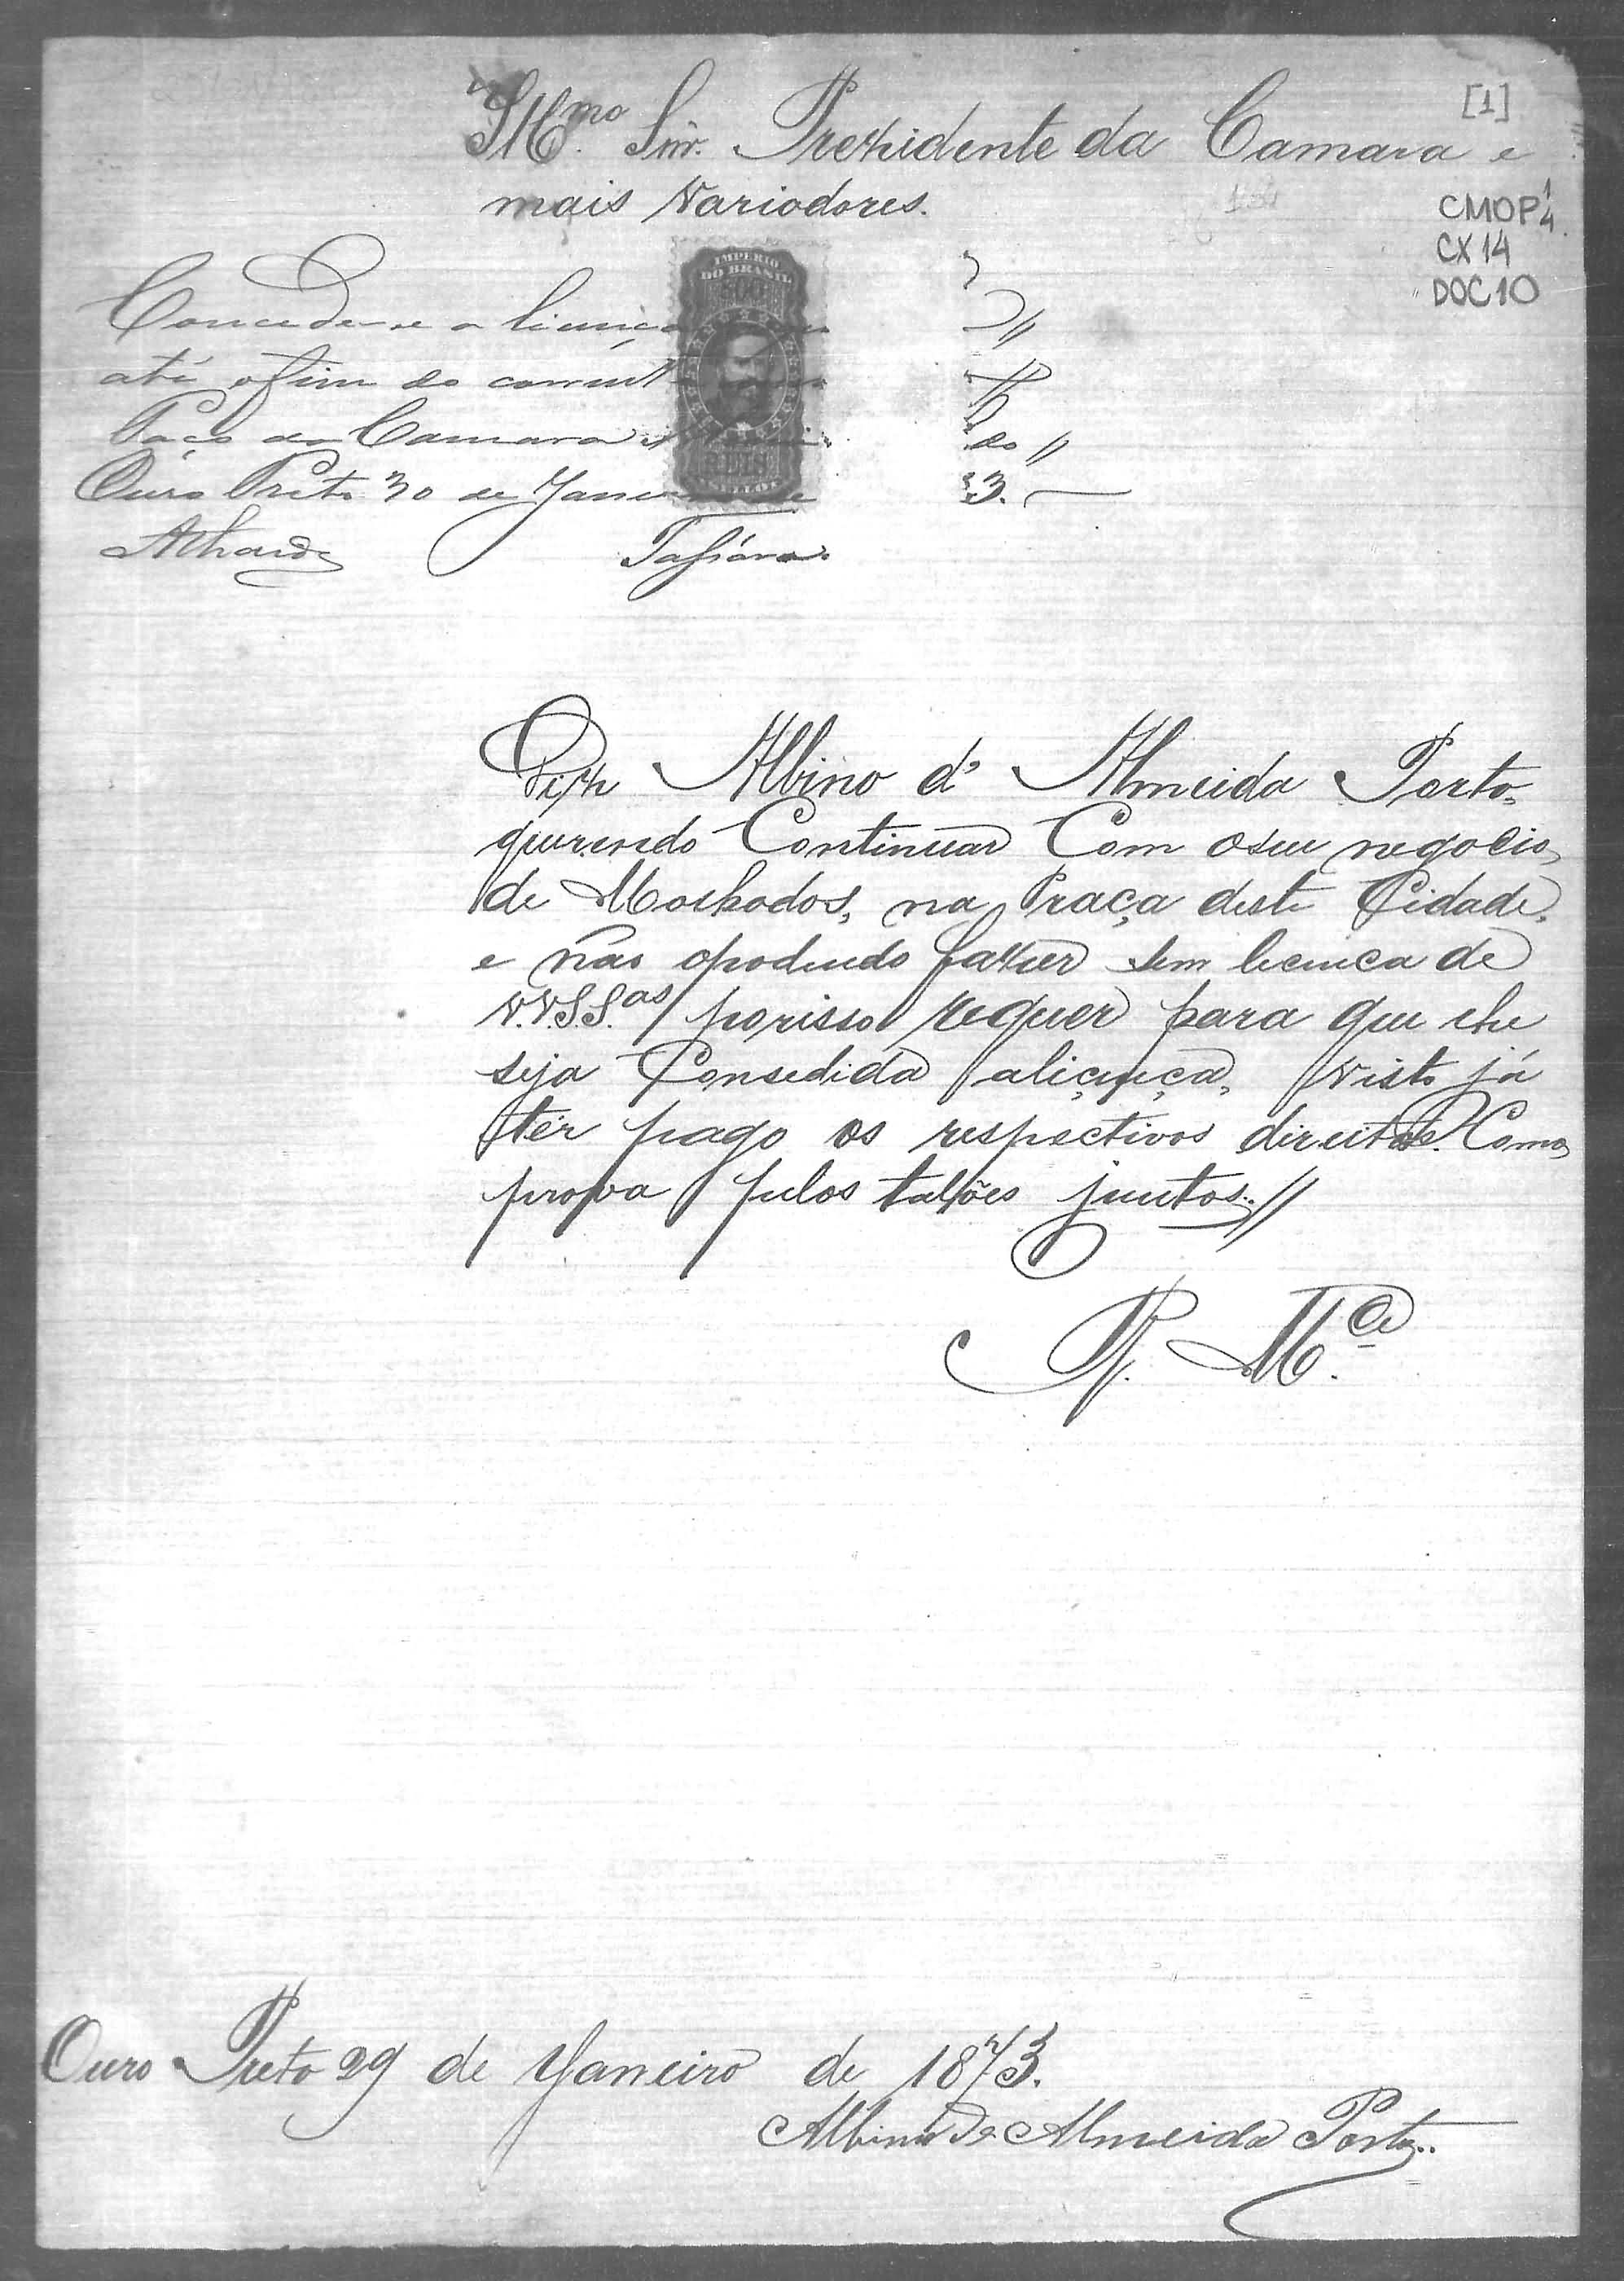 [1]
Illmo. Snr. Prezidente da Camara e
mais Variodores.
CMOP 1/4
CX 14
DOC 10
IMPERIO
DO BRASIL
REIS
SELLO
Concede-se a licença
até o fim do corrente
Paço da Camara
Ouro Preto 30 de Janeiro
do //
3.
Diz Albino d'Almeida Porto,
querendo Continuar Com oseu negocio,
de Moihados, na Praça deste Cidade,
e não opodendo fazer sem licenca de
V.V.S.S.as porisso requer para que lhe
seja Consedida aliçença, visto já
ter pago os respectivos direitos. Como
prova pelos talões juntos. //
P. M.ce
Ouro Preto 29 de Janeiro de 1873.
Albino de Almeida Porto..